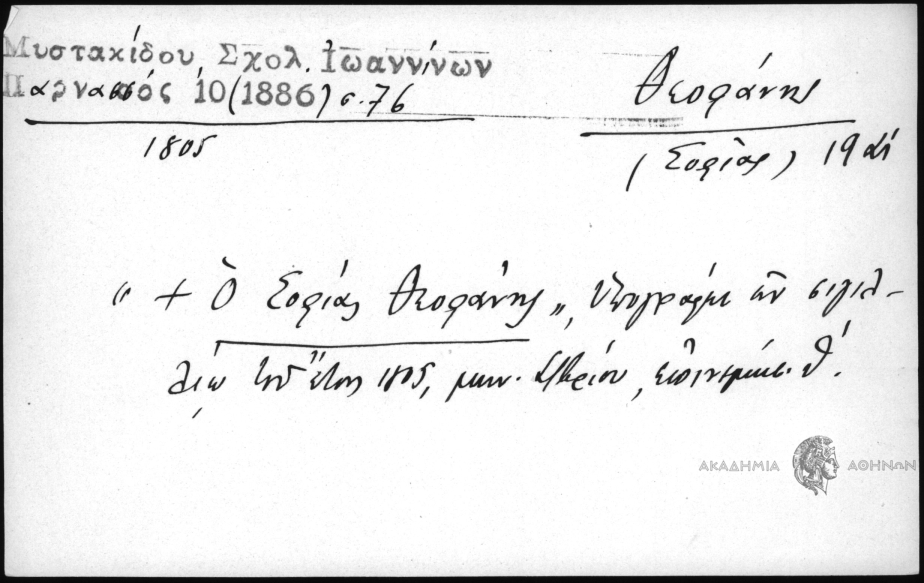 Μυστακίδου, Σχολ. Ἰωαννίνων
Παρνασσός 10 (1886) σ. 76
1805
Θεοφάνης
(Σοφίας) 19 αἰ
" + Ὁ Σοφίας Θεοφάνης „, ὑπογράφει ἐν σιγιλ-
λίῳ τοῦ ἔτους 1805, μην. ἐπινεμήσ. θ΄.
ΑΚΑΔΗΜΙΑ ΑΘΗΝΩΝ